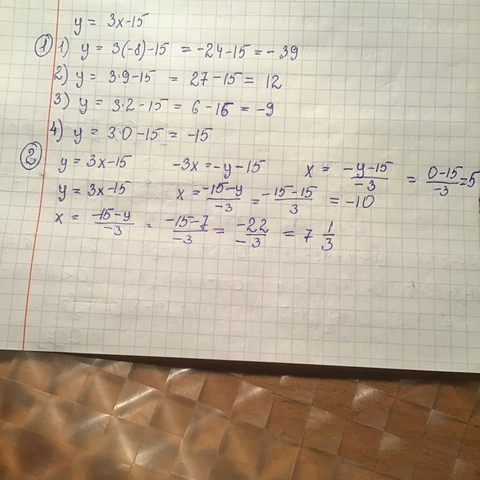 y = 3x-15
① 1) y = 3(-8)-15 = -24-15 = -39
2) y = 3·9-15 = 27-15 = 12
3) y = 3·2-15 = 6-15 = -9
4) y = 3·0-15 = -15
② y = 3x-15 -3x = -y-15 x = \frac{-y-15}{-3} = \frac{0-15}{-3} = 5
y = 3x-15 x = \frac{-15-y}{-3} = \frac{-15-15}{3} = -10
x = \frac{-15-y}{-3} = \frac{-15-7}{-3} = \frac{-22}{-3} = 7 \frac{1}{3}